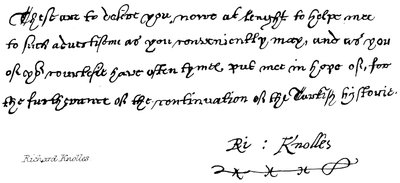 These are to desire you, nowe at lenght to helpe mee
to such advertisems as you conveniently may, and as you
of yor courtesie have often tymes put mee in hope of, for
the furtherance of the continuation of the Turkish historie.
Ri : Knolles
Richard Knolles